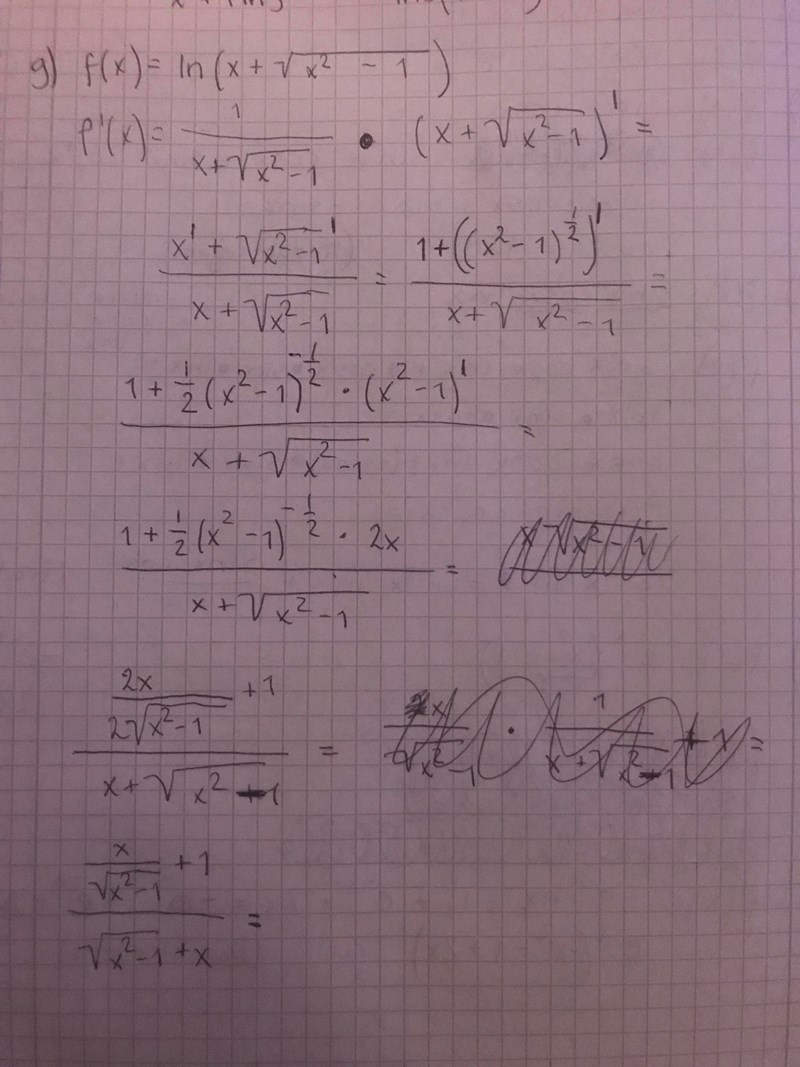 g) f(x) = ln(x + √(x² - 1))
f'(x) = 1/(x+√(x²-1)) • (x+√(x²-1))' =
(x' + √(x²-1)')/(x + √(x²-1)) = (1+((x²-1)^(1/2))')/(x+√(x²-1)) =
(1 + 1/2 (x²-1)^(-1/2) · (x²-1)')/(x + √(x²-1)) =
(1 + 1/2 (x²-1)^(-1/2) · 2x)/(x+√(x²-1)) =
(2x/(2√(x²-1)) + 1)/(x+√(x²-1)) = =
(x/√(x²-1) + 1)/(√(x²-1) + x) =